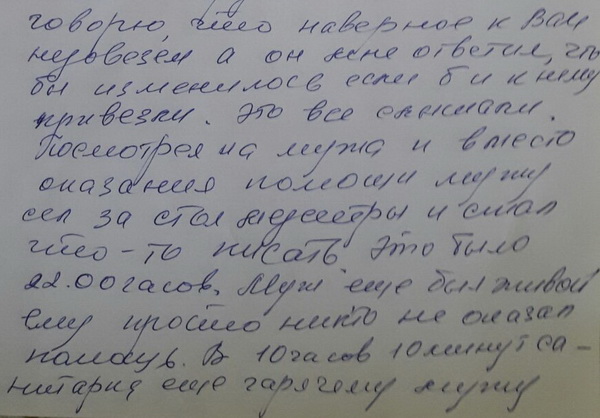 говорю, что наверное к Вам
недовезем а он мне ответил, что
бы изменилось если б и к нему
привезли. Это все слышали.
Посмотрел на мужа и вместо
оказания помощи мужу
сел за стол медсестры и стал
что-то писать это было
22.00 часов. Муж еще был живой
ему просто никто не оказал
помощь. В 10 часов 10 минут са-
нитарка еще гарячему мужу